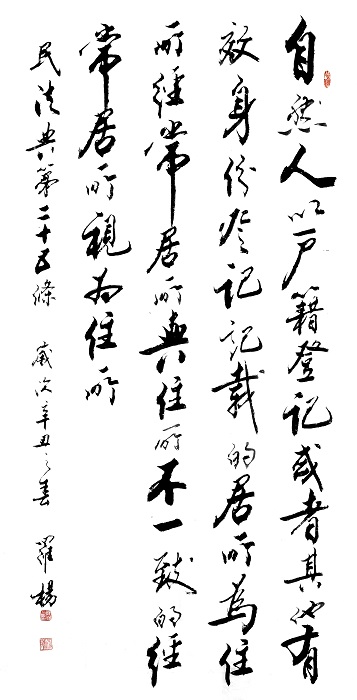 自然人以户籍登记或者其他有
效身份登记记载的居所為住
所經常居所與住所不一致的經
常居所視为住所
民法典第二十五條 歲次辛丑之春 羅楊